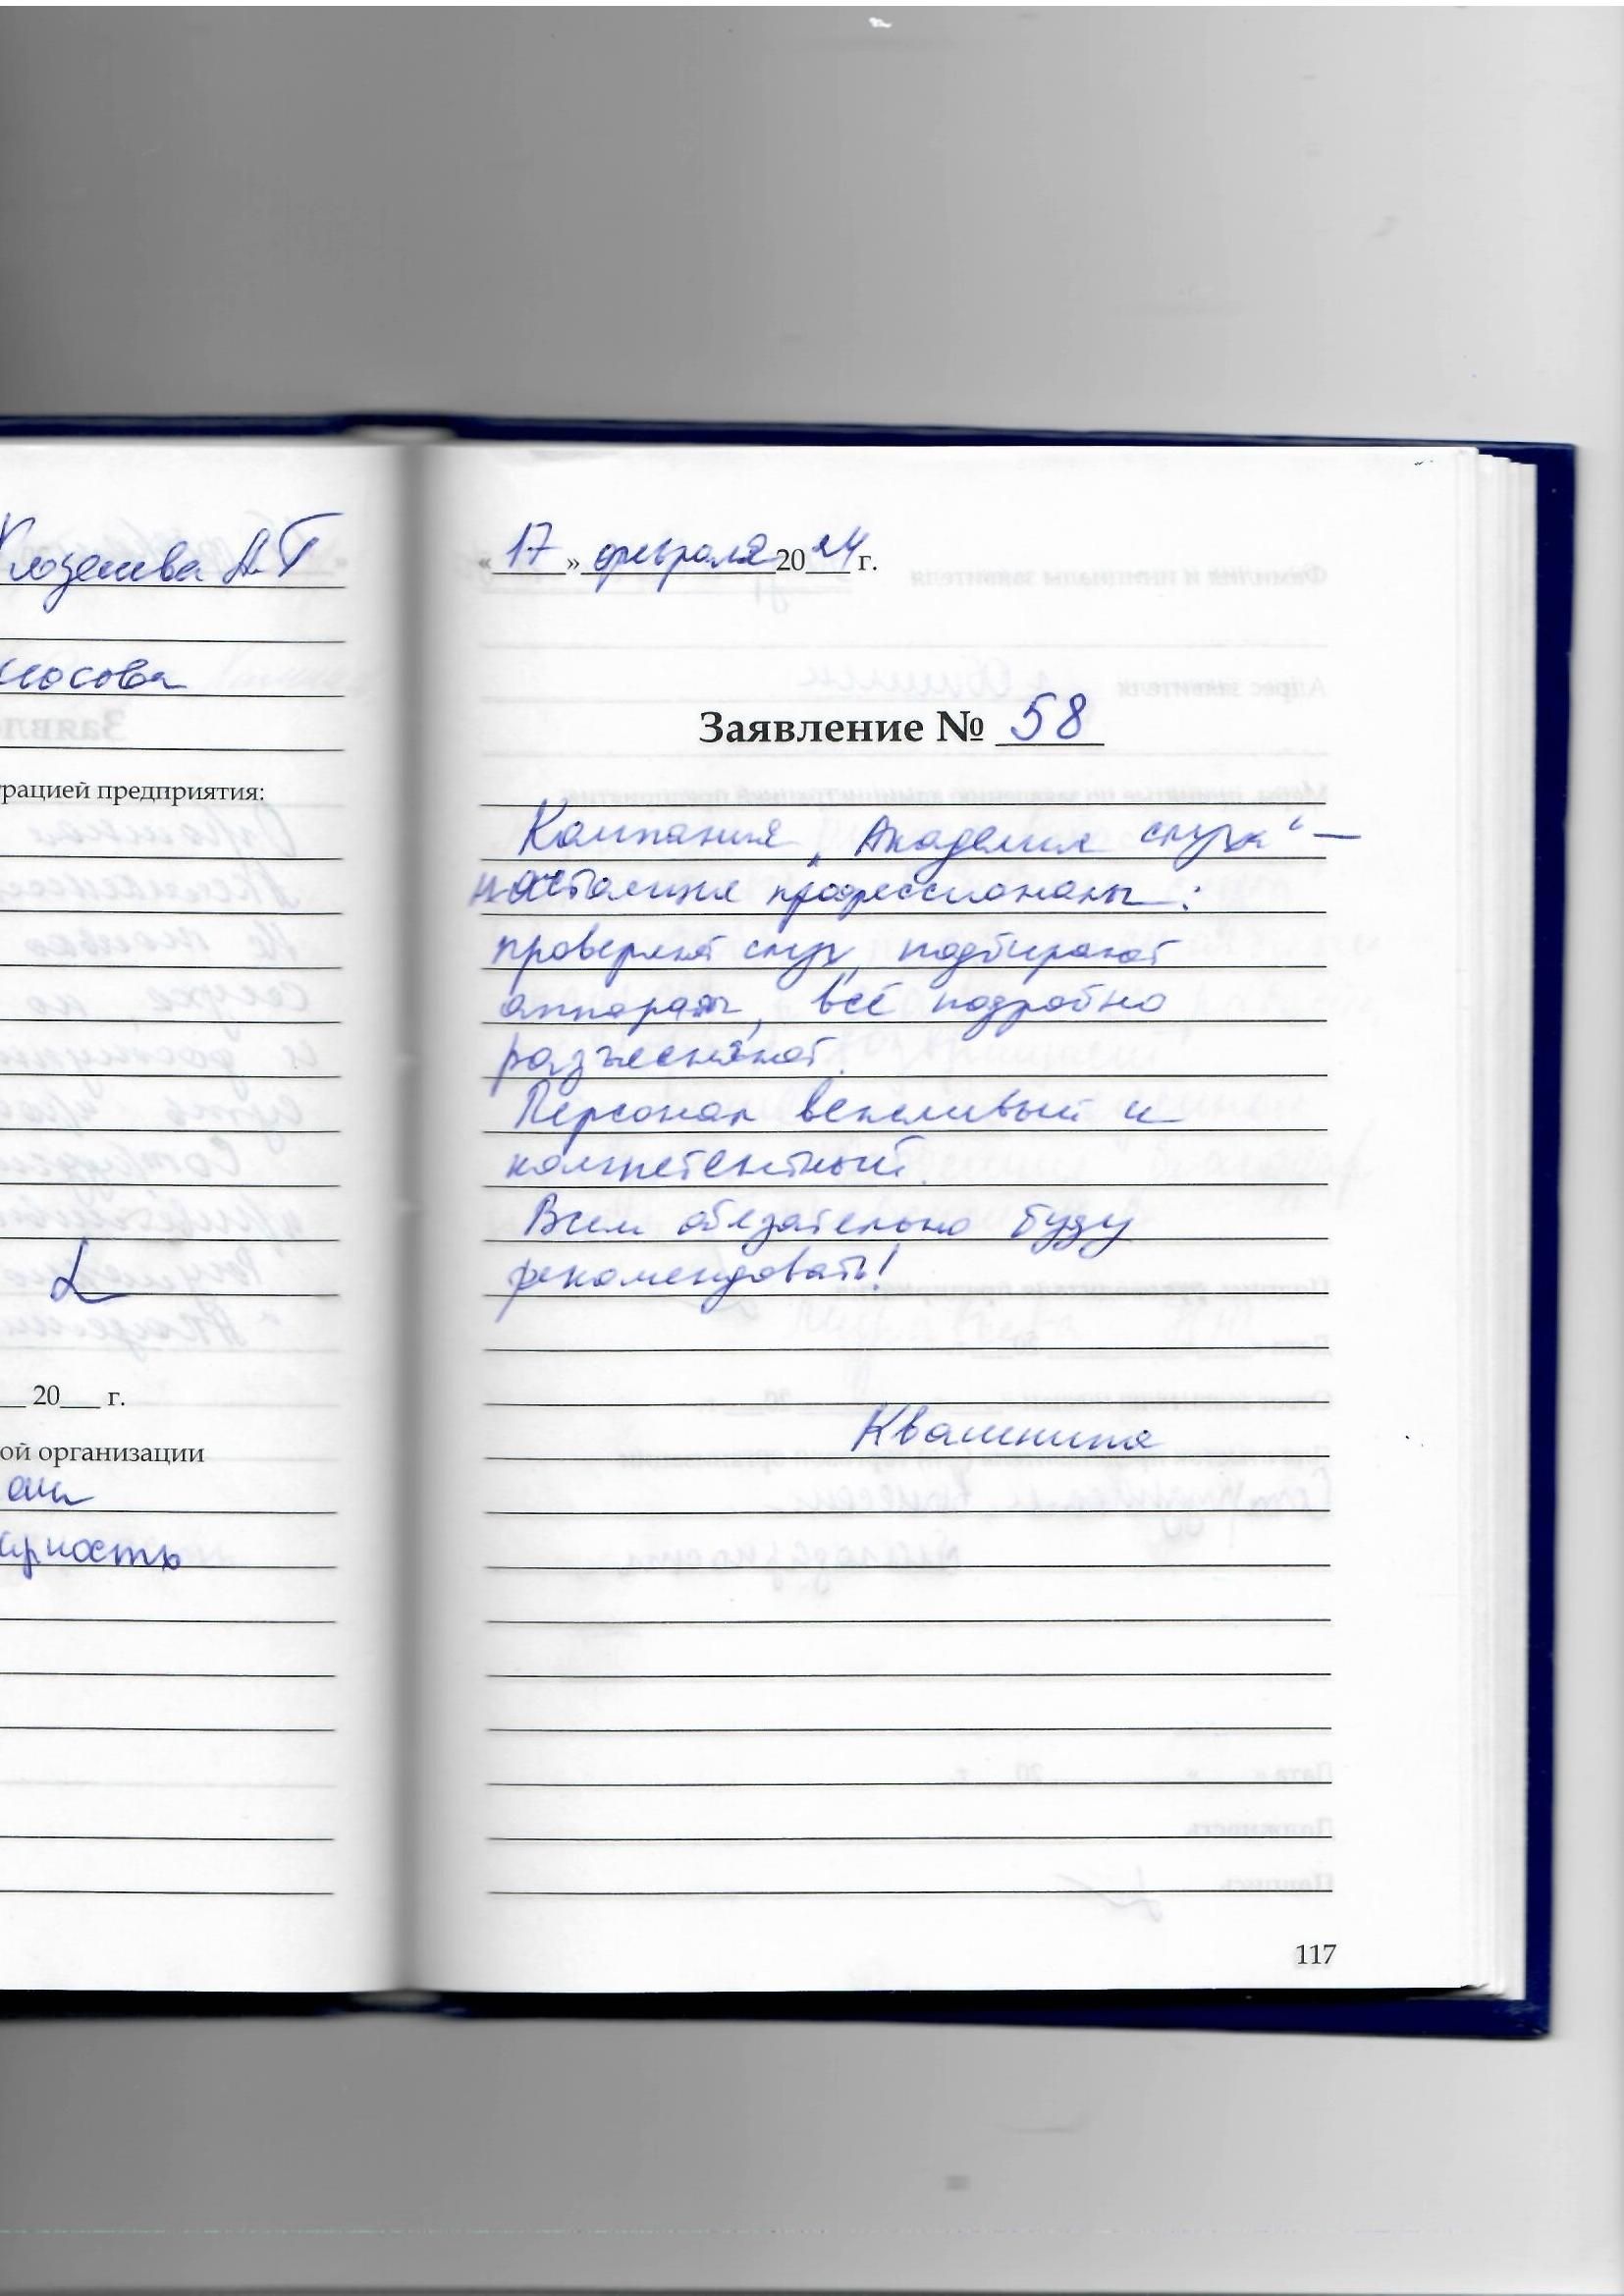 А.Г
носова
рацией предприятия:
20 г.
ой организации
арность
« 17 » февраля 2024 г.
Заявление № 58
Компания „Академия слуха“ –
настоящие профессионалы:
проверяют слух, подбирают
аппараты, всё подробно
разъясняют.
Персонал вежливый и
компетентный.
Всем обязательно буду
рекомендовать!
Квашнина
117